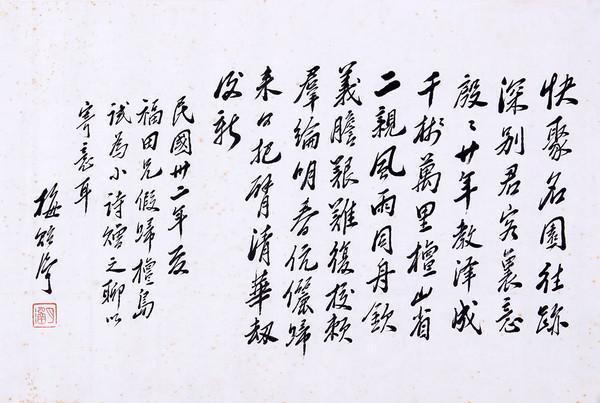 快聚名園往跡
深別君客裏意
殷々廿年教澤成
千彬萬里檀山省
二親風雨同舟欽
義膽艱難復校賴
羣綸明春伉儷歸
来日把臂清華劫
後新
民國卅二年夏
福田兄假歸檀島
試為小詩贈之聊以
寄意耳
梅貽琦